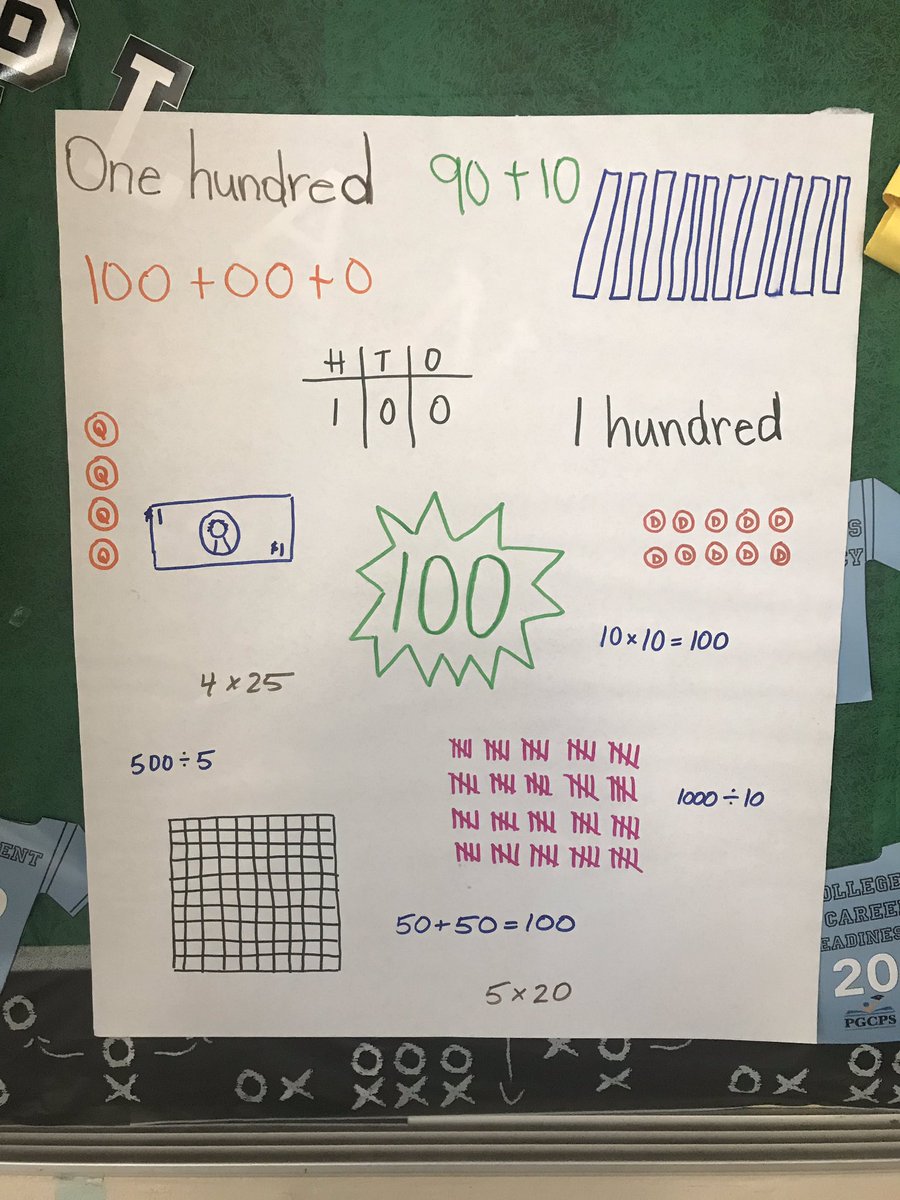 One hundred
90 + 10
100 + 00 + 0
H T O
1 0 0
1 hundred
Q
Q
Q
Q
$1
$1
D D D D D
D D D D D
100
10 × 10 = 100
4 × 25
500 ÷ 5
1000 ÷ 10
50 + 50 = 100
5 × 20
ENT
S
Y
OLLEGE
CAREE
EADINES
20
PGCPS
O
X
O
X
O X
O O O
X X X
X
O
X
O X